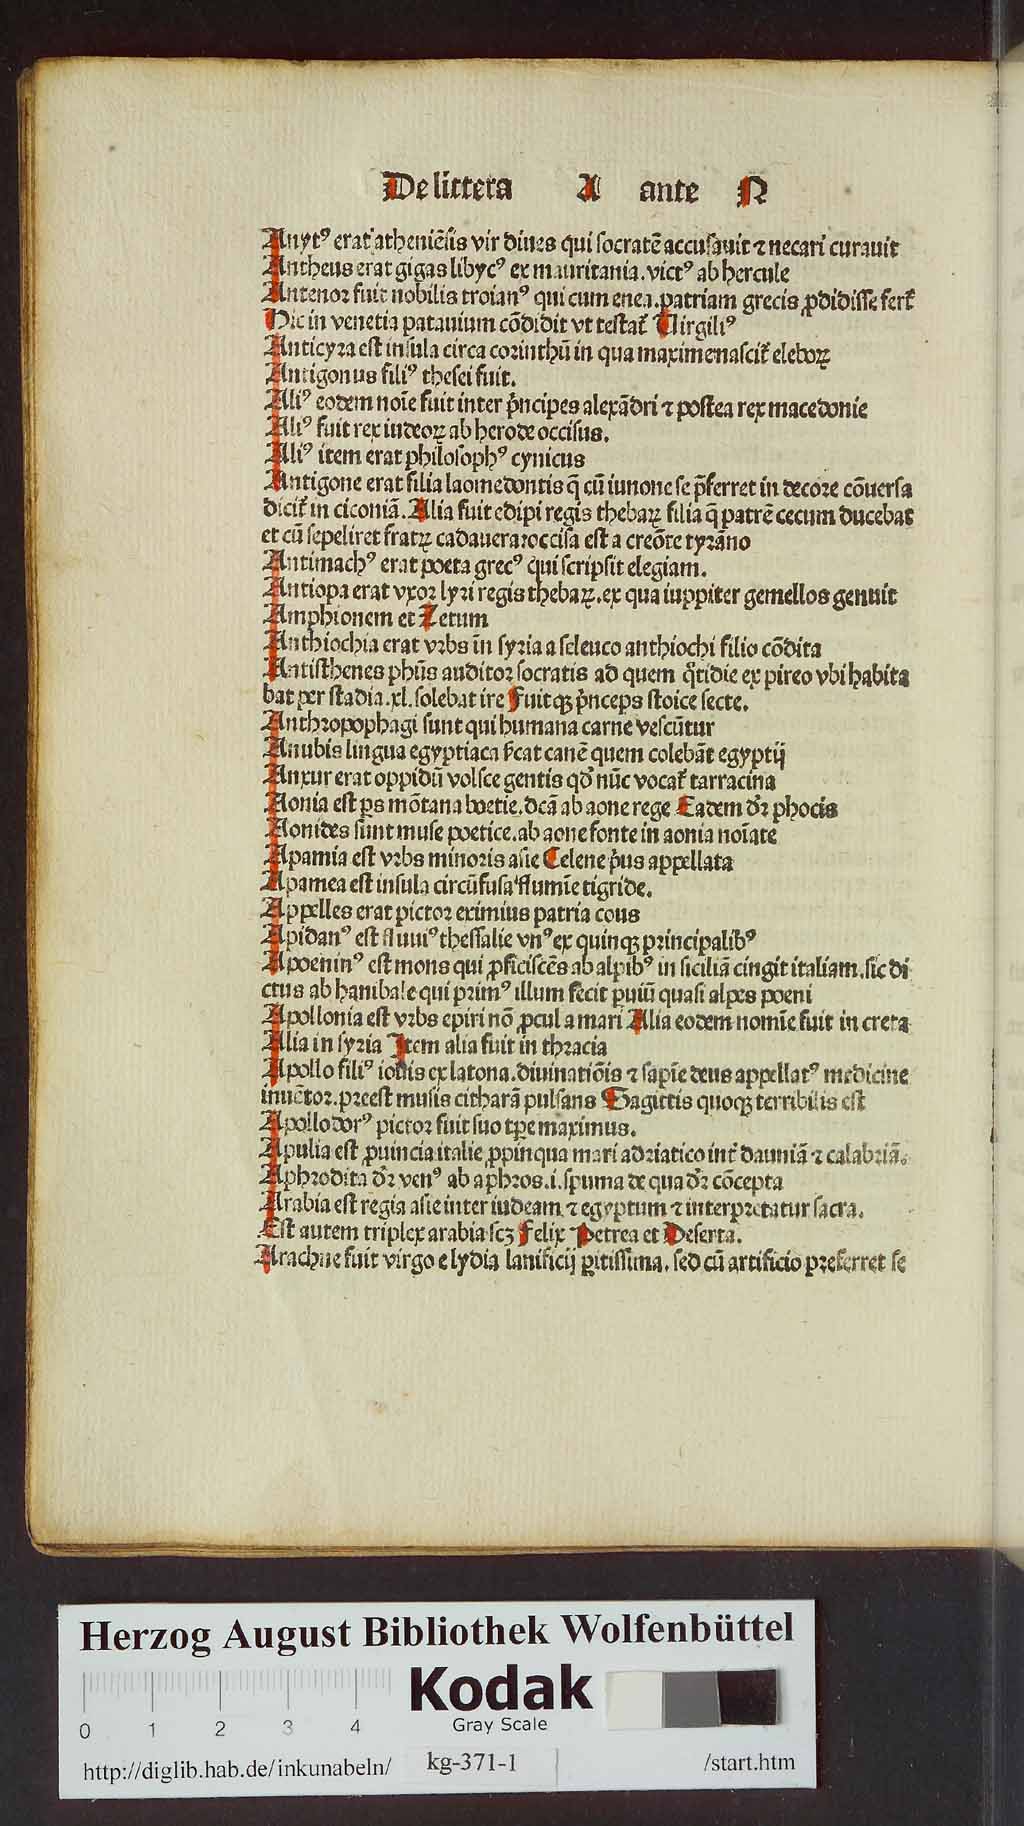 De littera A ante N
Anytꝰ erat atheniēsis vir diues qui socratē accusauit ⁊ necari curauit
Antheus erat gigas libycꝰ ex mauritania. victꝰ ab hercule
Antenoꝛ fuit nobilis troianꝰ qui cum enea patriam grecis ꝓdidisse ferť
Hic in venetia patauium cōdidit vt testať Uirgiliꝰ
Anticyꝛa est insula circa coꝛinthū in qua maxime nasciť eleboꝝ
Antigonus filiꝰ thesei fuit.
Aliꝰ eodem noīe fuit inter pͥncipes alexādri ⁊ postea rex macedonie
Aliꝰ fuit rex iudeoꝝ ab herode occisus.
Aliꝰ item erat philosophꝰ cynicus
Antigone erat filia laomedontis q̄ cū iunone se p̄ferret in decoꝛe cōuersa
diciť in ciconiā. Alia fuit edipi regis thebaꝝ filia q̄ patrē cecum ducebat
et cū sepeliret fratꝝ cadauera: occisa est a creōte tyꝛāno
Antimachꝰ erat poeta grecꝰ qui scripsit elegiam.
Antiopa erat vxoꝛ lyꝛi regis thebaꝝ. ex qua iuppiter gemellos genuit
Amphionem et Zetum
Anthiochia erat vꝛbs in syꝛia a seleuco anthiochi filio cōdita
Antisthenes phūs auditoꝛ socratis ad quem q̄tidie ex pireo vbi habita
bat per stadia .xl. solebat ire Fuitqꝫ pͥnceps stoice secte.
Anthꝛopophagi sunt qui humana carne vescūtur
Anubis lingua egyptiaca sͥcat canē quem colebāt egyptij
Anxur erat oppidū volsce gentis qđ nūc vocať tarracina
Aonia est ꝑs mōtana boetie. dcā ab aone rege Eadem đꝛ phocis
Aonides sunt muse poetice. ab aone fonte in aonia noīate
Apamia est vꝛbs minoꝛis asie Celene pͥus appellata
Apamea est insula circūfusa flumīe tigride.
Appelles erat pictoꝛ eximius patria cous
Apidanꝰ est fluuiꝰ thessalie vnꝰ ex quinqꝫ pꝛincipalibꝰ
Apoeninꝰ est mons qui ꝓficiscēs ab alpibꝰ in siciliā cingit italiam. sic di
ctus ab hanibale qui pꝛimꝰ illum fecit puiū quasi alpes poeni
Apollonia est vꝛbs epiri nō ꝓcul a mari Alia eodem nomīe fuit in creta
Alia in syꝛia Item alia fuit in thꝛacia
Apollo filiꝰ iouis ex latona. diuinatiōis ⁊ sapīe deus appellatꝰ medicine
inuētoꝛ. pꝛeest musis citharā pulsans Sagittis quoqꝫ terribilis est
Apollodoꝛꝰ pictoꝛ fuit suo tꝑe maximus.
Apulia est ꝓuincia italie ꝓpinqua mari adꝛiatico inť dauniā ⁊ calabꝛiā.
Aphꝛodita đꝛ venꝰ ab aphꝛos .i. spuma de qua đꝛ cōcepta
Arabia est regia asie inter iudeam ⁊ egyptum ⁊ interpꝛetatur sacra.
Est autem triplex arabia scꝫ Felix Petrea et Deserta.
Arachne fuit virgo e lydia lanificij ꝑitissima. sed cū artificio pꝛeferret se
Herzog August Bibliothek Wolfenbüttel
Kodak
Gray Scale
0 1 2 3 4
http://diglib.hab.de/inkunabeln/ kg-371-1 /start.htm